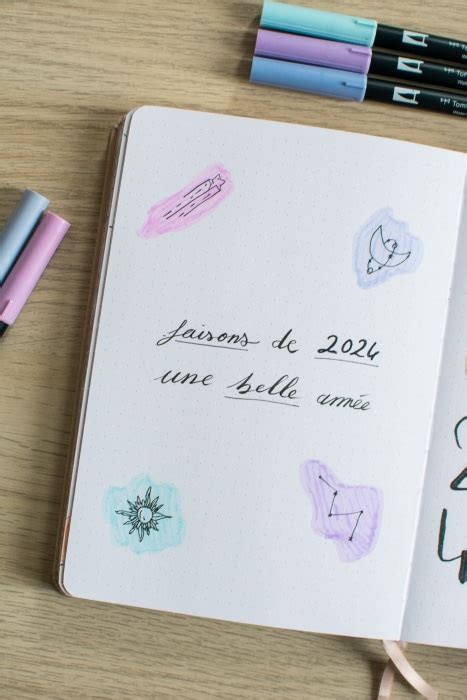 faisons de 2024
une belle année
Tom
Tom
Tom
2
4